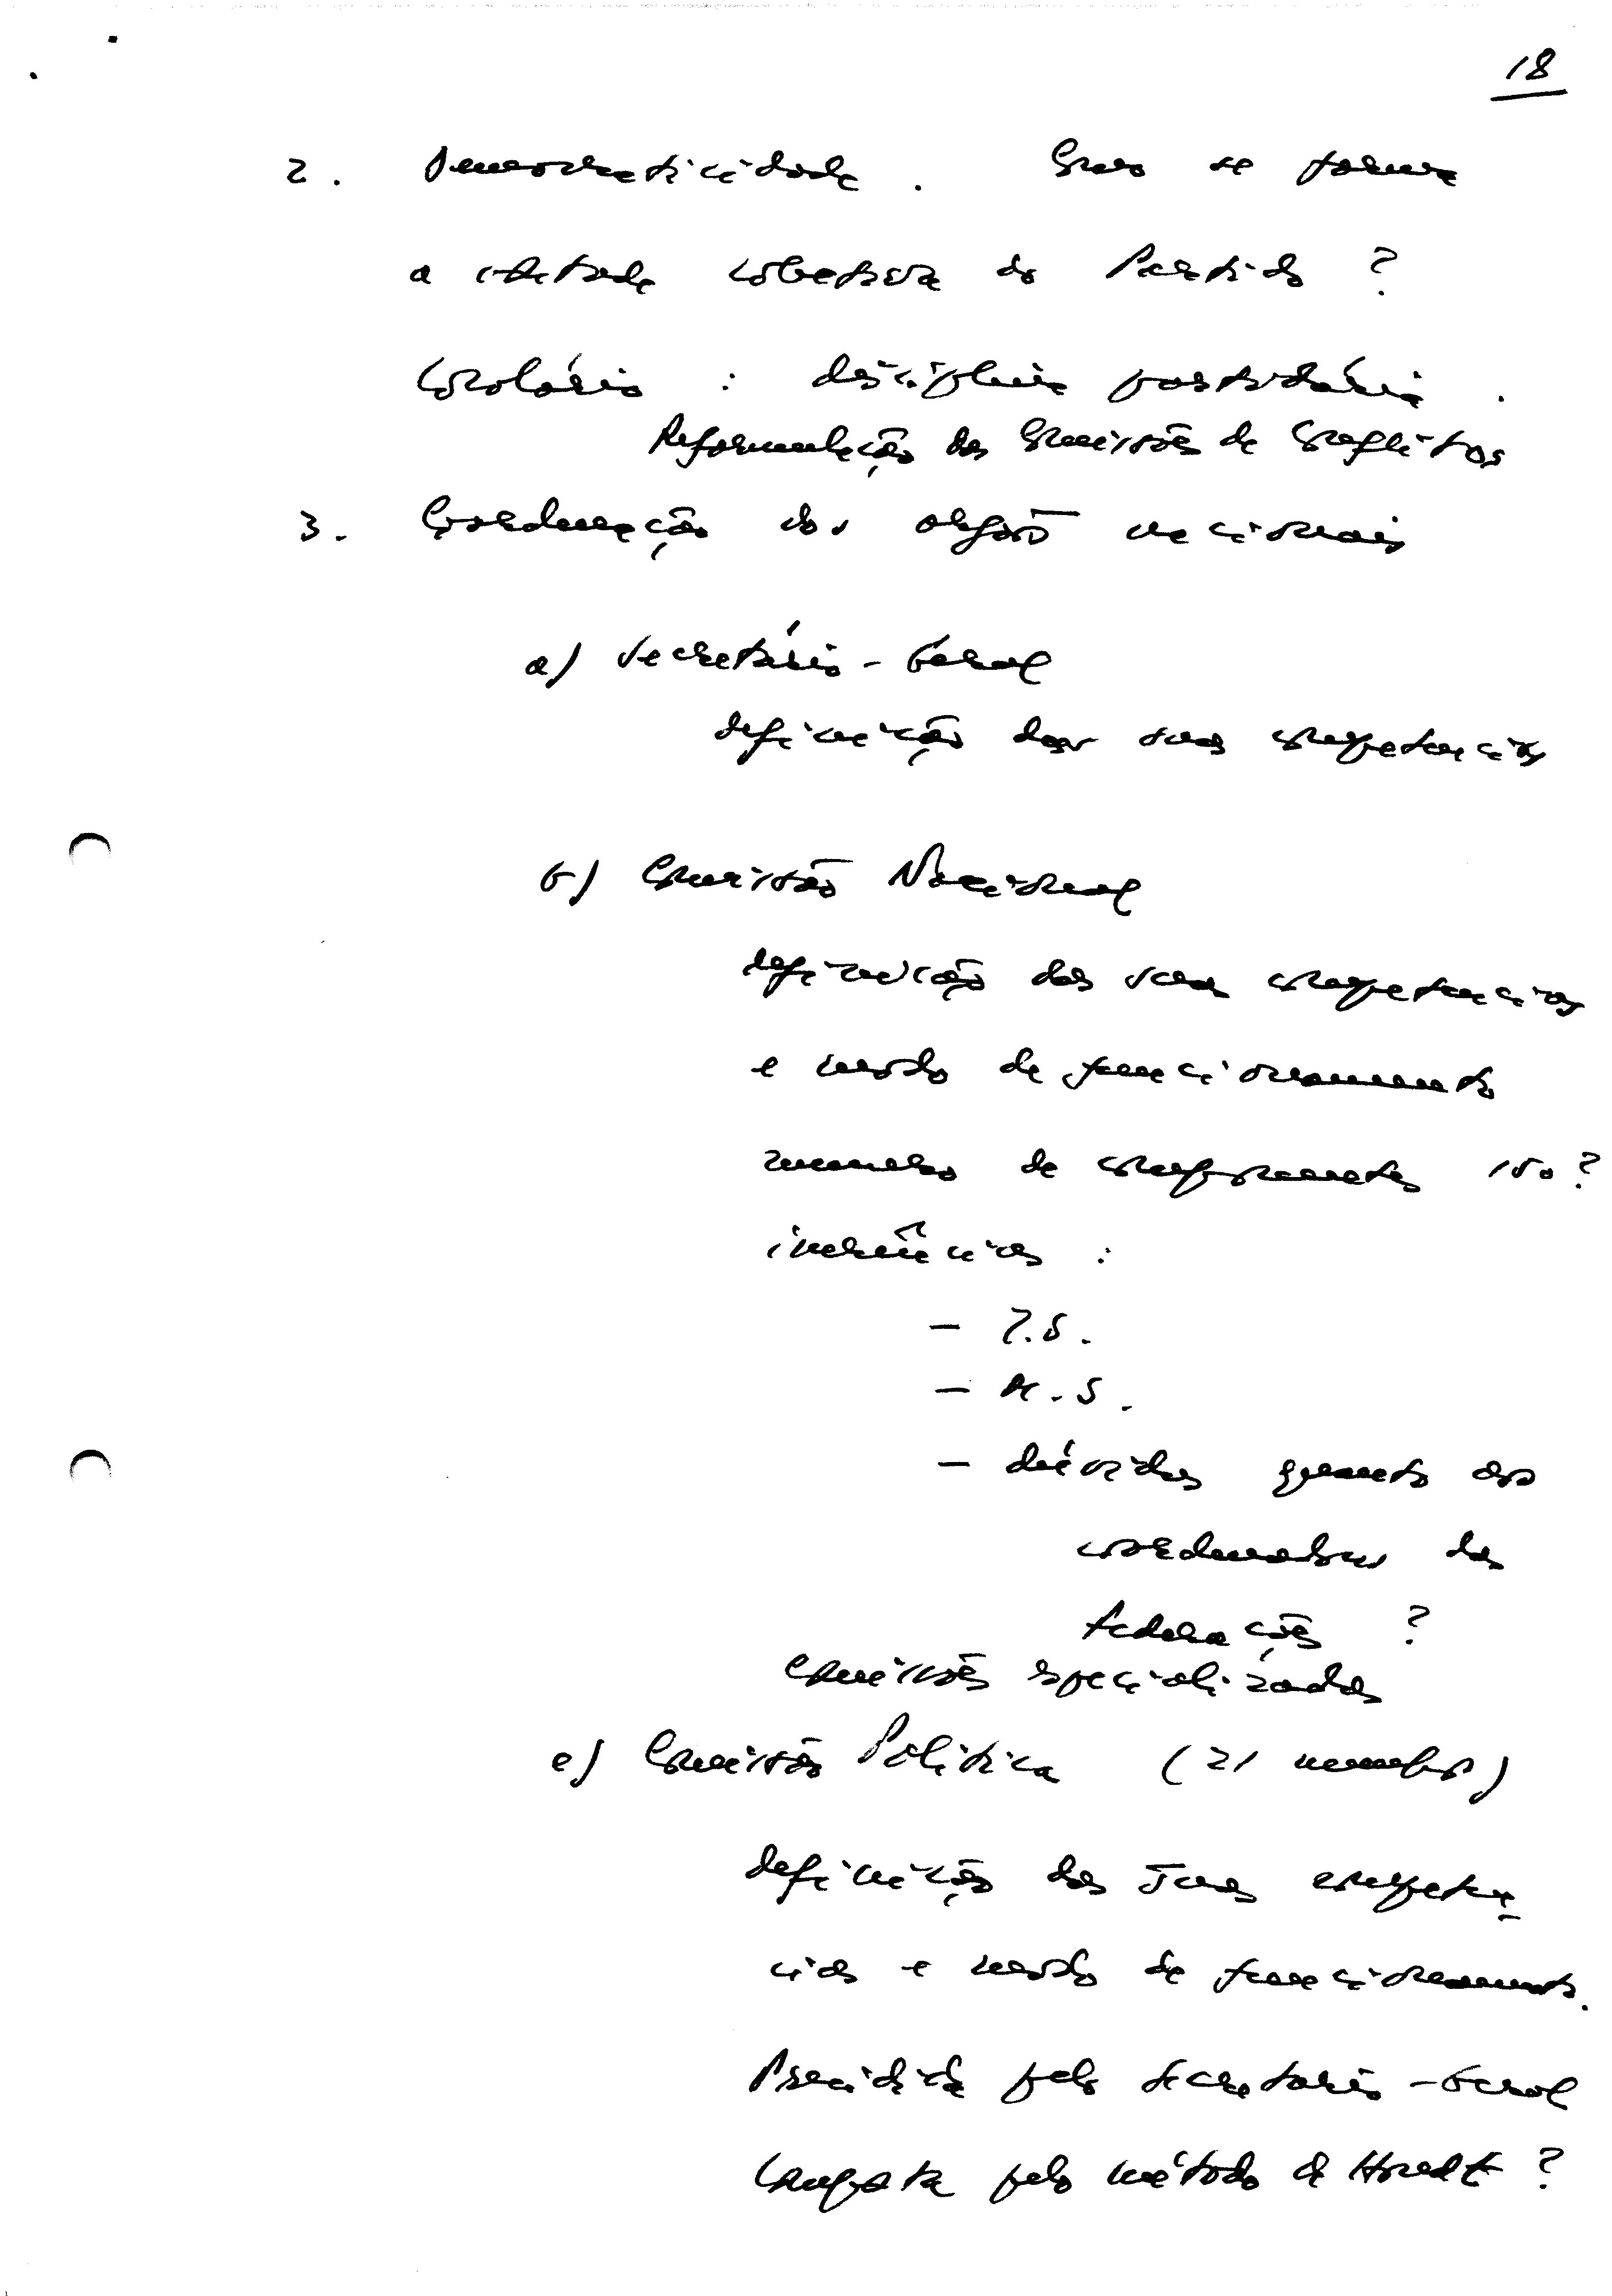 18
2. Democraticidade. Como se forma
a vontade colectiva do Partido ?
Corolário : disciplina partidária.
Reformulação das Comissões de Conflitos
3. Coordenação dos orgãos nacionais
a) Secretário-Geral
definição das suas competencias
b) Comissão Nacional
definição das suas competencias
e modo de funcionamento
numero de componentes 150 ?
inerências :
- J.S.
- M.S.
- dúvidas quanto aos
coordenadores das
Federações ?
comissões especializadas
c) Comissão Politica (21 membros)
definição das suas competen-
cias e modo de funcionamento.
Presidida pelo Secretario-Geral
Composta pelo método de Hondt ?